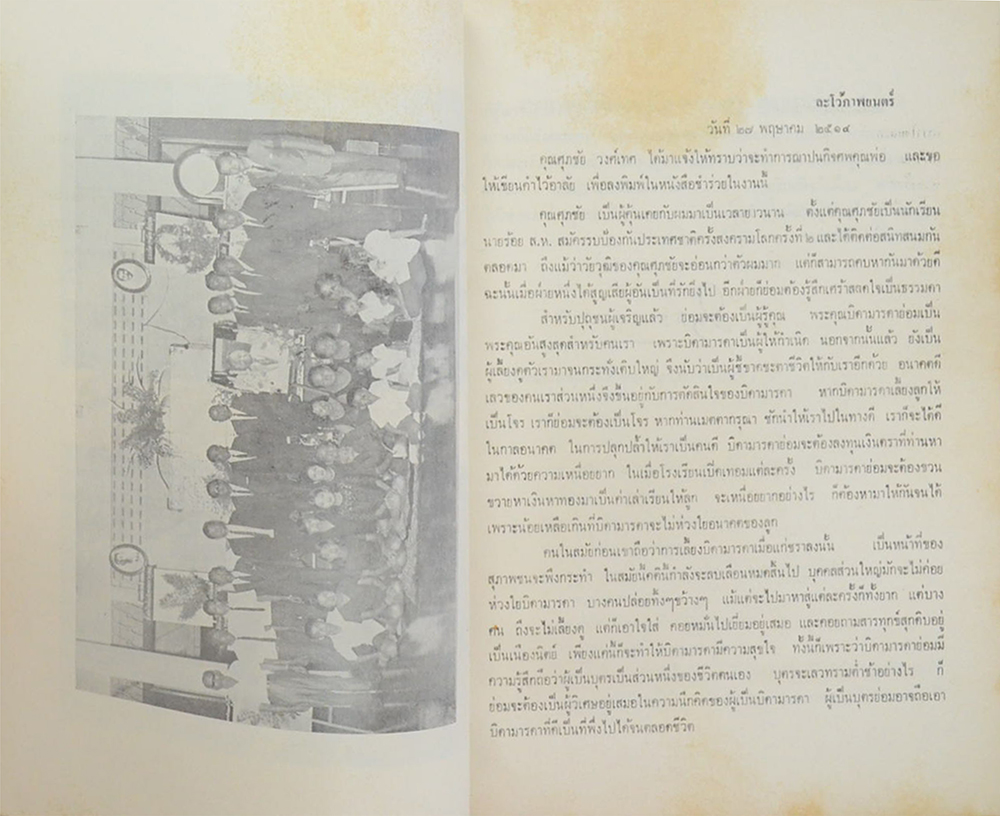 ละโว้ภาพยนตร์
วันที่ ๒๗ พฤษภาคม ๒๕๑๔
คุณศุภชัย วงศ์เทศ ได้มาแจ้งให้ทราบว่าจะทำการฌาปนกิจศพคุณพ่อ และขอ
ให้เขียนคำไว้อาลัย เพื่อลงพิมพ์ในหนังสือชำร่วยในงานนี้
คุณศุภชัย เป็นผู้คุ้นเคยกับผมมาเป็นเวลายาวนาน ตั้งแต่คุณศุภชัยเป็นนักเรียน
นายร้อย ส.ห. สมัครรบป้องกันประเทศชาติครั้งสงครามโลกครั้งที่ ๒ และได้ติดต่อสนิทสนมกัน
ตลอดมา ถึงแม้ว่าวัยวุฒิของคุณศุภชัยจะอ่อนกว่าตัวผมมาก แต่ก็สามารถคบหากันมาด้วยดี
ฉะนั้นเมื่อฝ่ายหนึ่งได้สูญเสียผู้อันเป็นที่รักยิ่งไป อีกฝ่ายก็ย่อมต้องรู้สึกเศร้าสลดใจเป็นธรรมดา
สำหรับปุถุชนผู้เจริญแล้ว ย่อมจะต้องเป็นผู้รู้คุณ พระคุณบิดามารดาย่อมเป็น
พระคุณอันสูงสุดสำหรับคนเรา เพราะบิดามารดาเป็นผู้ให้กำเนิด นอกจากนั้นแล้ว ยังเป็น
ผู้เลี้ยงดูตัวเรามาจนกระทั่งเติบใหญ่ จึงนับว่าเป็นผู้ชี้ขาดชะตาชีวิตให้กับเราอีกด้วย อนาคตดี
เลวของคนเราส่วนหนึ่งจึงขึ้นอยู่กับการตัดสินใจของบิดามารดา หากบิดามารดาเลี้ยงลูกให้
เป็นโจร เราก็ย่อมจะต้องเป็นโจร หากท่านเมตตากรุณา ชักนำให้เราไปในทางดี เราก็จะได้ดี
ในกาลอนาคต ในการปลุกปล้ำให้เราเป็นคนดี บิดามารดาย่อมจะต้องลงทุนเงินตราที่ท่านหา
มาได้ด้วยความเหนื่อยยาก ในเมื่อโรงเรียนเปิดเทอมแต่ละครั้ง บิดามารดาย่อมจะต้องขวน
ขวายหาเงินหาทองมาเป็นค่าเล่าเรียนให้ลูก จะเหนื่อยยากอย่างไร ก็ต้องหามาให้กันจนได้
เพราะน้อยเหลือเกินที่บิดามารดาจะไม่ห่วงใยอนาคตของลูก
คนในสมัยก่อนเขาถือว่าการเลี้ยงบิดามารดาเมื่อแก่ชราลงนั้น เป็นหน้าที่ของ
สุภาพชนจะพึงกระทำ ในสมัยนี้คตินี้กำลังจะลบเลือนหมดสิ้นไป บุคคลส่วนใหญ่มักจะไม่ค่อย
ห่วงใยบิดามารดา บางคนปล่อยทิ้งๆขว้างๆ แม้แต่จะไปมาหาสู่แต่ละครั้งก็ทั้งยาก แต่บาง
คน ถึงจะไม่เลี้ยงดู แต่ก็เอาใจใส่ คอยหมั่นไปเยี่ยมอยู่เสมอ และคอยถามสารทุกข์สุกดิบอยู่
เป็นเนืองนิตย์ เพียงแค่นี้ก็จะทำให้บิดามารดามีความสุขใจ ทั้งนี้ก็เพราะว่าบิดามารดาย่อมมี
ความรู้สึกถือว่าผู้เป็นบุตรเป็นส่วนหนึ่งของชีวิตตนเอง บุตรจะเลวทรามต่ำช้าอย่างไร ก็
ย่อมจะต้องเป็นผู้วิเศษอยู่เสมอในความนึกคิดของผู้เป็นบิดามารดา ผู้เป็นบุตรย่อมอาจถือเอา
บิดามารดาที่ดีเป็นที่พึ่งไปได้จนตลอดชีวิต